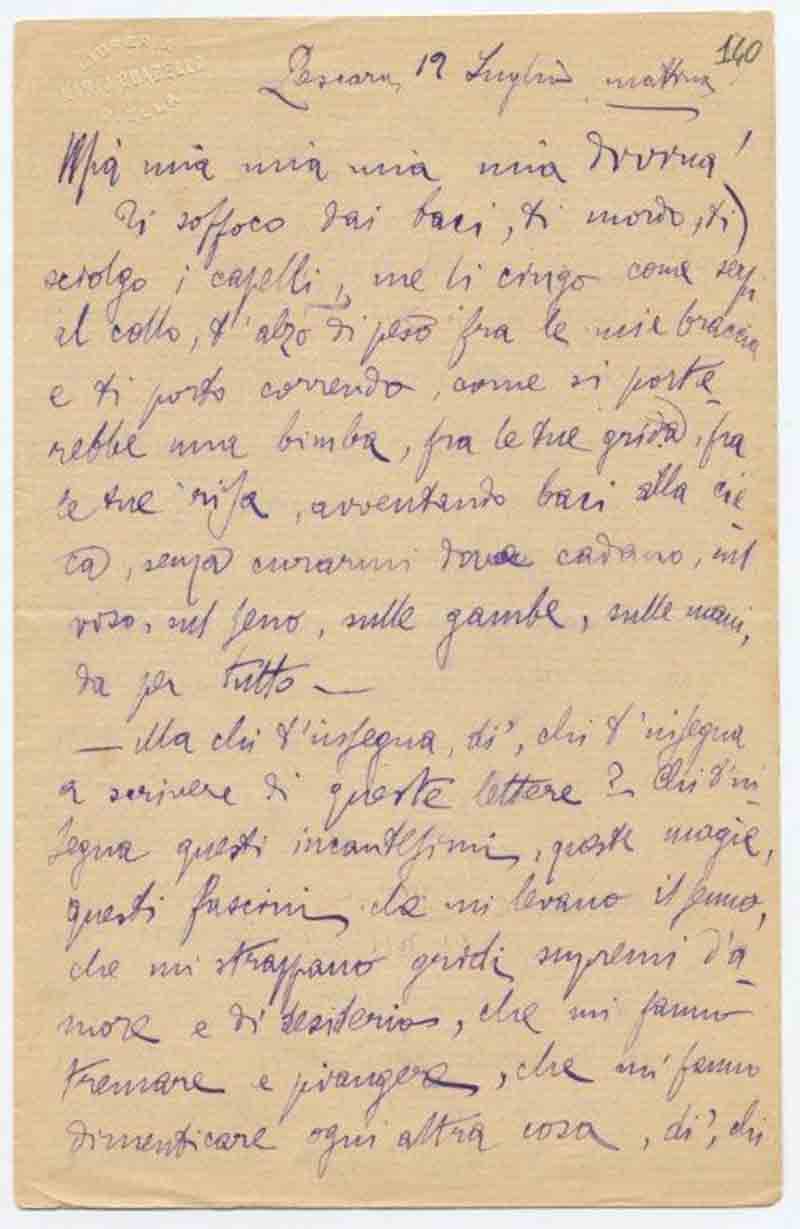 140
Pescara, 12 Luglio mattina
Mia mia mia mia mia divina!
Ti soffoco dai baci, ti mordo, ti
sciolgo i capelli, me li cingo come serpi
al collo, t'alzo di peso fra le mie braccia
e ti porto correndo, come si porte-
rebbe una bimba, fra le tue grida, fra
le tue risa, avventando baci alla cie-
ca, senza curarmi dove cadano, sul
viso, sul seno, sulle gambe, sulle mani,
da per tutto —
— Ma chi t'insegna, di', chi t'insegna
a scrivere di queste lettere? Chi t'in-
segna questi incantesimi, queste magie,
questi fascini che mi levano il senno,
che mi strappano gridi supremi d'a-
more e di desiderio, che mi fanno
tremare e piangere, che mi fanno
dimenticare ogni altra cosa, di', chi